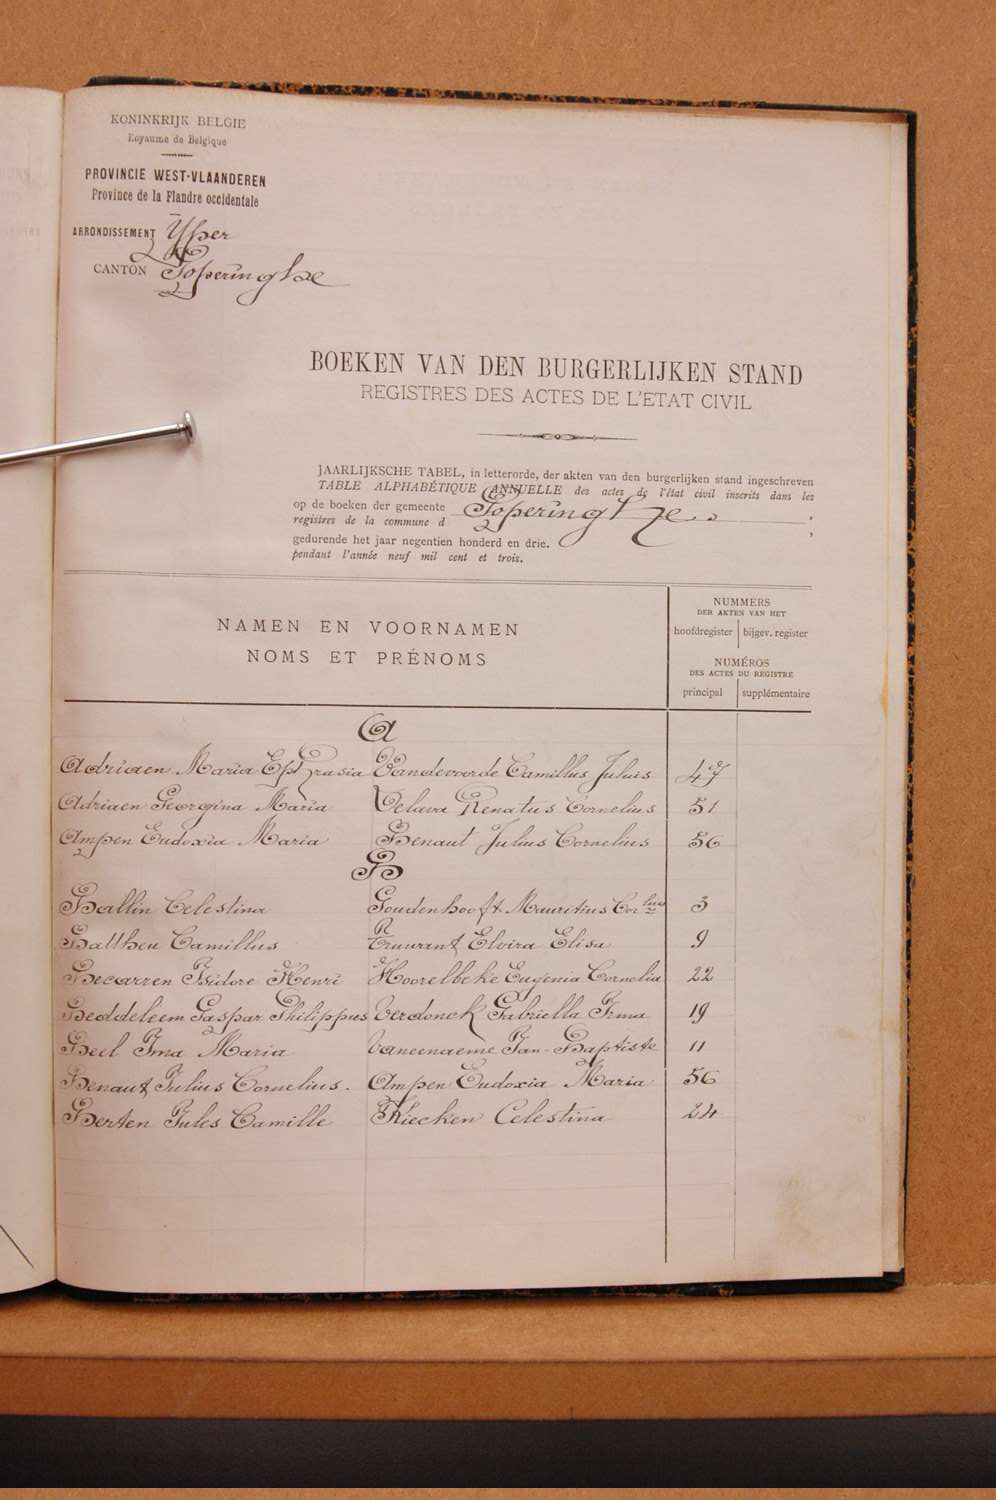 KONINKRIJK BELGIE
Royaume de Belgique
PROVINCIE WEST-VLAANDEREN
Province de la Flandre occidentale
ARRONDISSEMENT Yper
CANTON Poperinghe
BOEKEN VAN DEN BURGERLIJKEN STAND
REGISTRES DES ACTES DE L'ETAT CIVIL
JAARLIJKSCHE TABEL, in letterorde, der akten van den burgerlijken stand ingeschreven
TABLE ALPHABÉTIQUE ANNUELLE des actes de l'état civil inscrits dans les
op de boeken der gemeente Poperinghe ;
registres de la commune d ;
gedurende het jaar negentien honderd en drie.
pendant l'année neuf mil cent et trois.
NAMEN EN VOORNAMEN
NOMS ET PRÉNOMS
NUMMERS
DER AKTEN VAN HET
hoofdregister bijgev. register
NUMÉROS
DES ACTES DU REGISTRE
principal supplémentaire
A
Adriaen Maria Vandevoorde Camillus Julius 47
Adriaen Georgina Maria Delava Renatus Cornelius 51
Ampen Eudoxia Maria Benaut Julius Cornelius 56
B
Ballin Celestina Goudenhooft Mauritius Corlius 3
Battheu Camillus Elvira Elisa 9
Becarren Isidore Henri Hoorelbeke Eugenia Cornelia 22
Beddeleem Gaspar Philippus Verdonck Gabriella Irma 19
Beel Irma Maria Vaneenaeme Jan-Baptiste 11
Benaut Julius Cornelius. Ampen Eudoxia Maria 56
Berten Jules Camille Kiecken Celestina 24